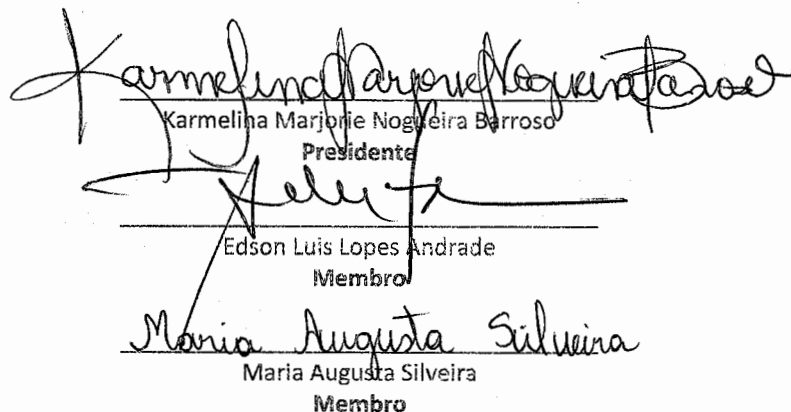 Karmelina Marjorie Nogueira Barroso
Karmelina Marjorie Nogueira Barroso
Presidente
Edson Luis Lopes Andrade
Membro
Maria Augusta Silveira
Maria Augusta Silveira
Membro